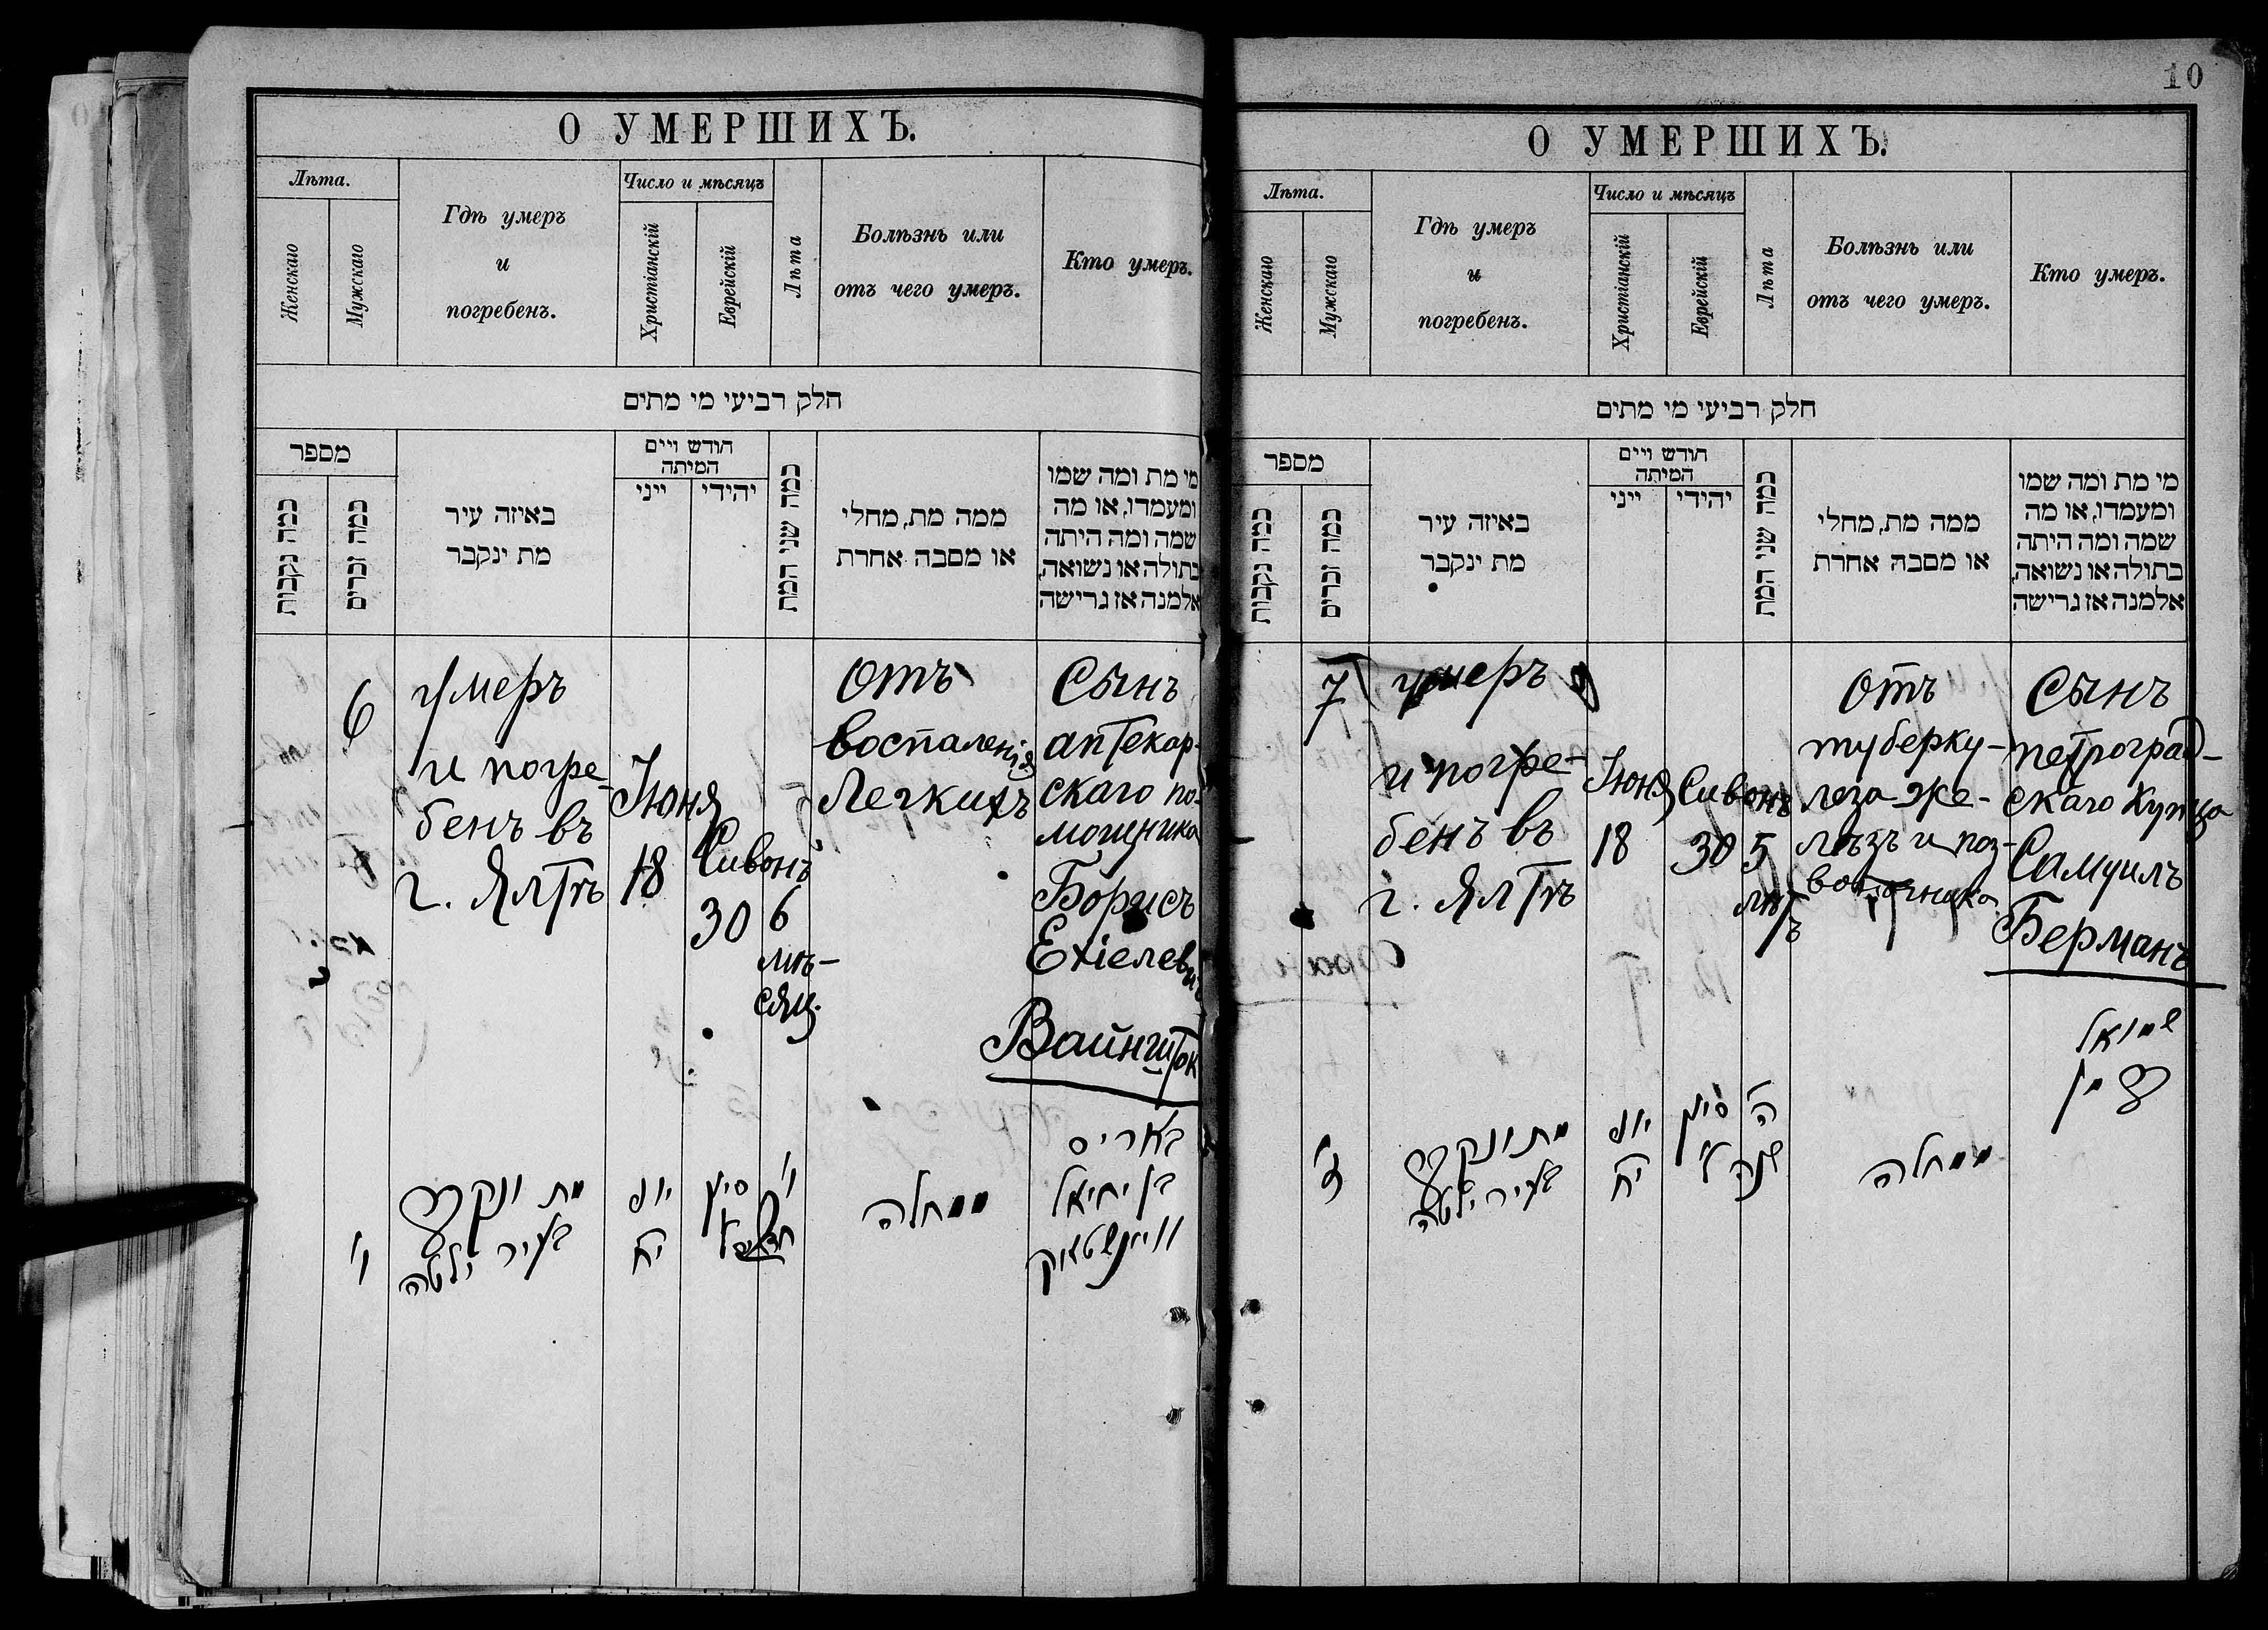 О УМЕРШИХЪ.
Лѣта.
Женскаго
Мужскаго
Гдѣ умеръ
и
погребенъ.
Число и мѣсяцъ
Христіанскій
Еврейскій
Лѣта
Болѣзнь или
отъ чего умеръ.
Кто умеръ.
חלק רביעי מי מתים
מספר
כמה נקבות
כמה זכרים
באיזה עיר
מת ינקבר
חודש ויים
המיתה
ייני
יהודי
כמה שני המת
ממה מת, מחלי
או מסבה אחרת
מי מת ומה שמו
ומעמדו, או מה
שמה ומה היתה
בתולה או נשואה,
אלמנה אז גרישה
6
умеръ
и погре-
бенъ въ
г. Ялтѣ
Іюня
18
Сивонъ
30
6
мѣ-
сяц.
Отъ
воспаленія
Легкихъ
Сынъ
аптекар-
скаго по-
мощника
Борисъ
Ехіелевич
Вайншток
ו'
מת ונקבר
בעיר ילטה
יוני
יח
סיון
ל'
ו'
ממחלה
באריס
בן יחיאל
וויינשטאק
10
О УМЕРШИХЪ.
Лѣта.
Женскаго
Мужскаго
Гдѣ умеръ
и
погребенъ.
Число и мѣсяцъ
Христіанскій
Еврейскій
Лѣта
Болѣзнь или
отъ чего умеръ.
Кто умеръ.
חלק רביעי מי מתים
מספר
כמה נקבות
כמה זכרים
באיזה עיר
מת ינקבר
חודש ויים
המיתה
ייני
יהודי
כמה שני המת
ממה מת, מחלי
או מסבה אחרת
מי מת ומה שמו
ומעמדו, או מה
שמה ומה היתה
בתולה או נשואה,
אלמנה אז גרישה
7
умеръ
и погре-
бенъ въ
г. Ялтѣ
Іюня
18
Сивонъ
30
5
лѣтъ
Отъ
туберку-
леза же-
лѣзъ и поз-
воночника
Сынъ
петроград-
скаго купца
Самуилъ
Берманъ
ז'
מת ונקבר
בעיר ילטה
יוני
יח
סיון
ל'
ה'
שנה
ממחלה
שמואל